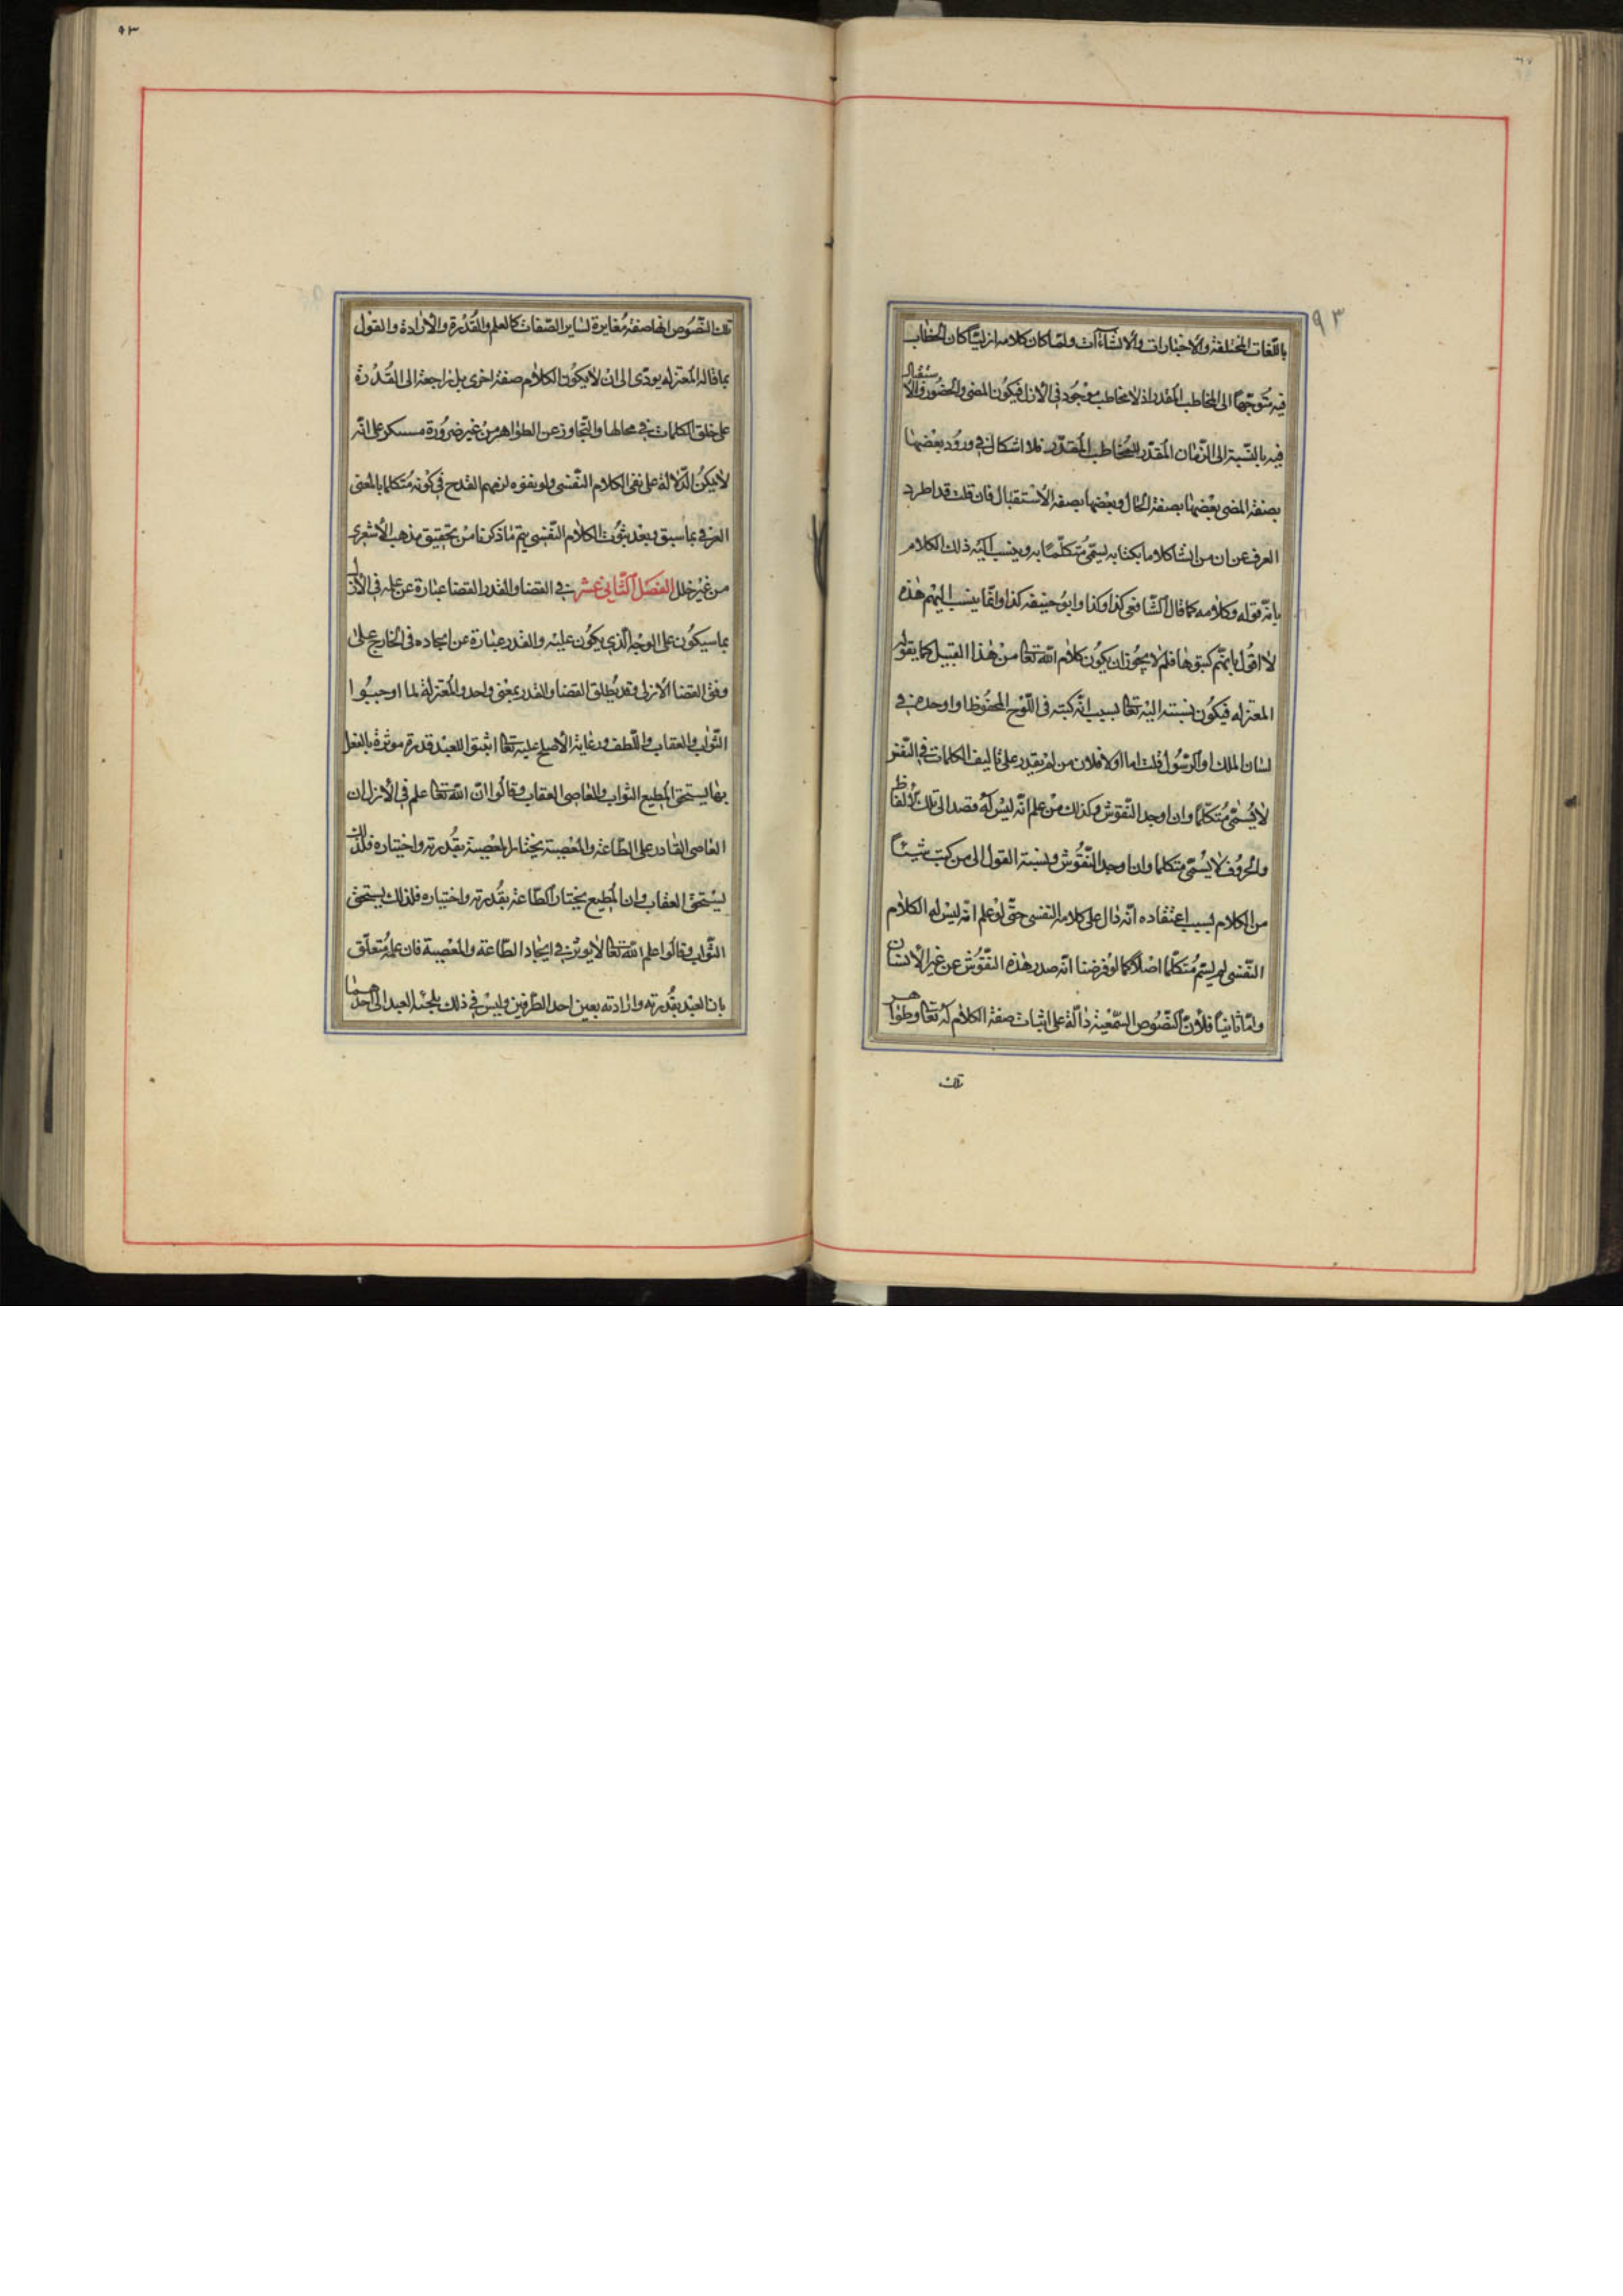 ٩٣
باللّغات المختلفة والاخبارات والانشاآت ولمّا كان كلامه ازليّا كان الخطاب
فيه متوجّها الى المخاطب المقدر اذ لا مخاطب موجود في الازل فيكون المضى والحضور والاستقبال
فيه بالنّسبة الى الزّمان المقدّر للمخاطب المقدّر فلا اشكال في ورود بعضها
بصفة المضى بعضها بصفة الحال وبعضها بصفة الاستقبال فان قلت قد اطرد
العرف عن ان من انشا كلاما بكتابه يسمّى متكلّما به وينسب اليه ذلك الكلام
بانّه قوله وكلامه كما قال الشّافعى كذا وكذا وابو حنيفه كذا وانّما ينسب اليهم هذه
لاقوال بانّهم كبتوها فلم لا يجوز ان يكون كلام اللّه تعالى من هذا القبيل كما يقوله
المعتزله فيكون نسبته اليه تعالى بسبب انّه كتبه في اللّوح المحفوظ او اوجده في
لسان الملك او الرّسول قلت اما اولا فلان من لم يقدر على تاليف الكلمات في النّفس
لا يسمّى متكلّما وان اوجد النّقوش وكذلك من علم انّه ليس له قصد الى تلك الالفاظ
والحروف لا يسمّى متكلما وان اوجد النّقوش ونسبة القول الى من كتب شيئاً
من الكلام بسبب اعتقاده انّه دال على كلامه النفسى حتّى لو علم انّه ليس له الكلام
النّفسى لم يسم متكلّما اصلا كما لو فرضنا انّه صدر هذه النّقوش عن غير الانسان
وامّا ثانيا فلانّ النّصوص السّمعيّة دالّة على اثبات صفة الكلام له تعالى وظواهر
تلك
٩٣
تلك النّصوص انها صفة مغايرة لساير الصّفات كالعلم والقدرة والارادة والقول
بما قاله المعتزله يودّى الى ان لا يكون الكلام صفة اخرى بل راجعة الى القدرة
على خلق الكلمات في محالها والتّجاوز عن الظواهر من غير ضرورة مستنكر على انّه
لا يكن الدّلالة على نفى الكلام النّفسى ولو يفوه لزمهم القدح في كونه متكلما بالمعنى
العرفي بما سبق وبعد ثبوت الكلام النّفسى يتم ما ذكرنا من تحقيق مذهب الاشعرى
من غير خلل الفصل الثّانى عشر في القضا والقدر القضا عبارة عن علمه في الازل
بما سيكون على الوجه الّذى يكون عليه والقدر عبارة عن ايجاده في الخارج على
وفق القضا الازلى وقد يطلق القضا والقدر بمعنى واحد والمعتزلة لما اوجبوا
الثّواب والعقاب واللّطف ورعاية الاصلح عليه تعالى اثبتوا للعبد قدرة موثرة بالفعل
بها يستحق المطيع الثواب والعاصى العقاب وقالوا انّ اللّه تعالى علم في الازل ان
العاصى القادر على الطّاعة والمعصية يختار المعصية بقدرته واختياره فلذلك
يستحق العقاب وان المطيع يختار الطّاعة بقدرته واختياره فلذلك يستحق
الثّواب وقالوا علم اللّه تعالى لا يوثر في ايجاد الطّاعة والمعصية فان علمه متعلّق
بان العبد بقدرته وارادته يعين احد الطّرفين وليس في ذلك يلجئ العبد الى احدهما